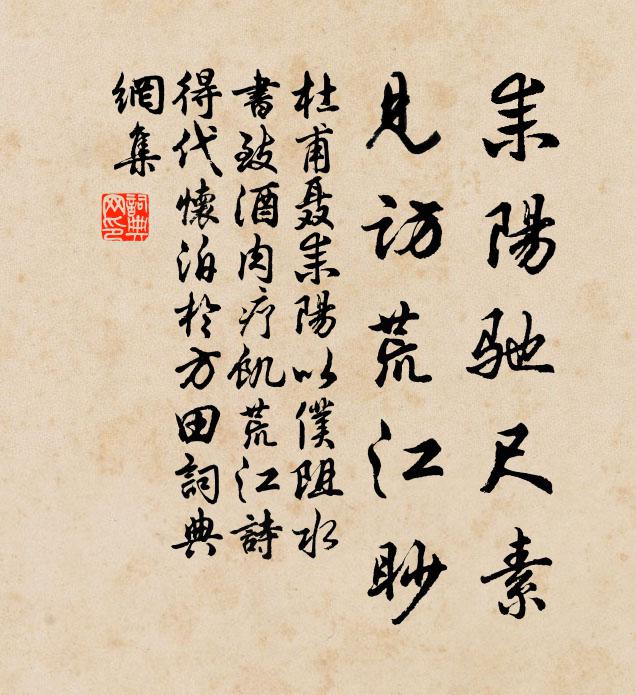 耒陽馳尺素
見訪荒江眇
杜甫聶耒陽以僕阻水
書致酒肉疗飢荒江詩
得代懷泊於方田詞典
網集
詞典
网印